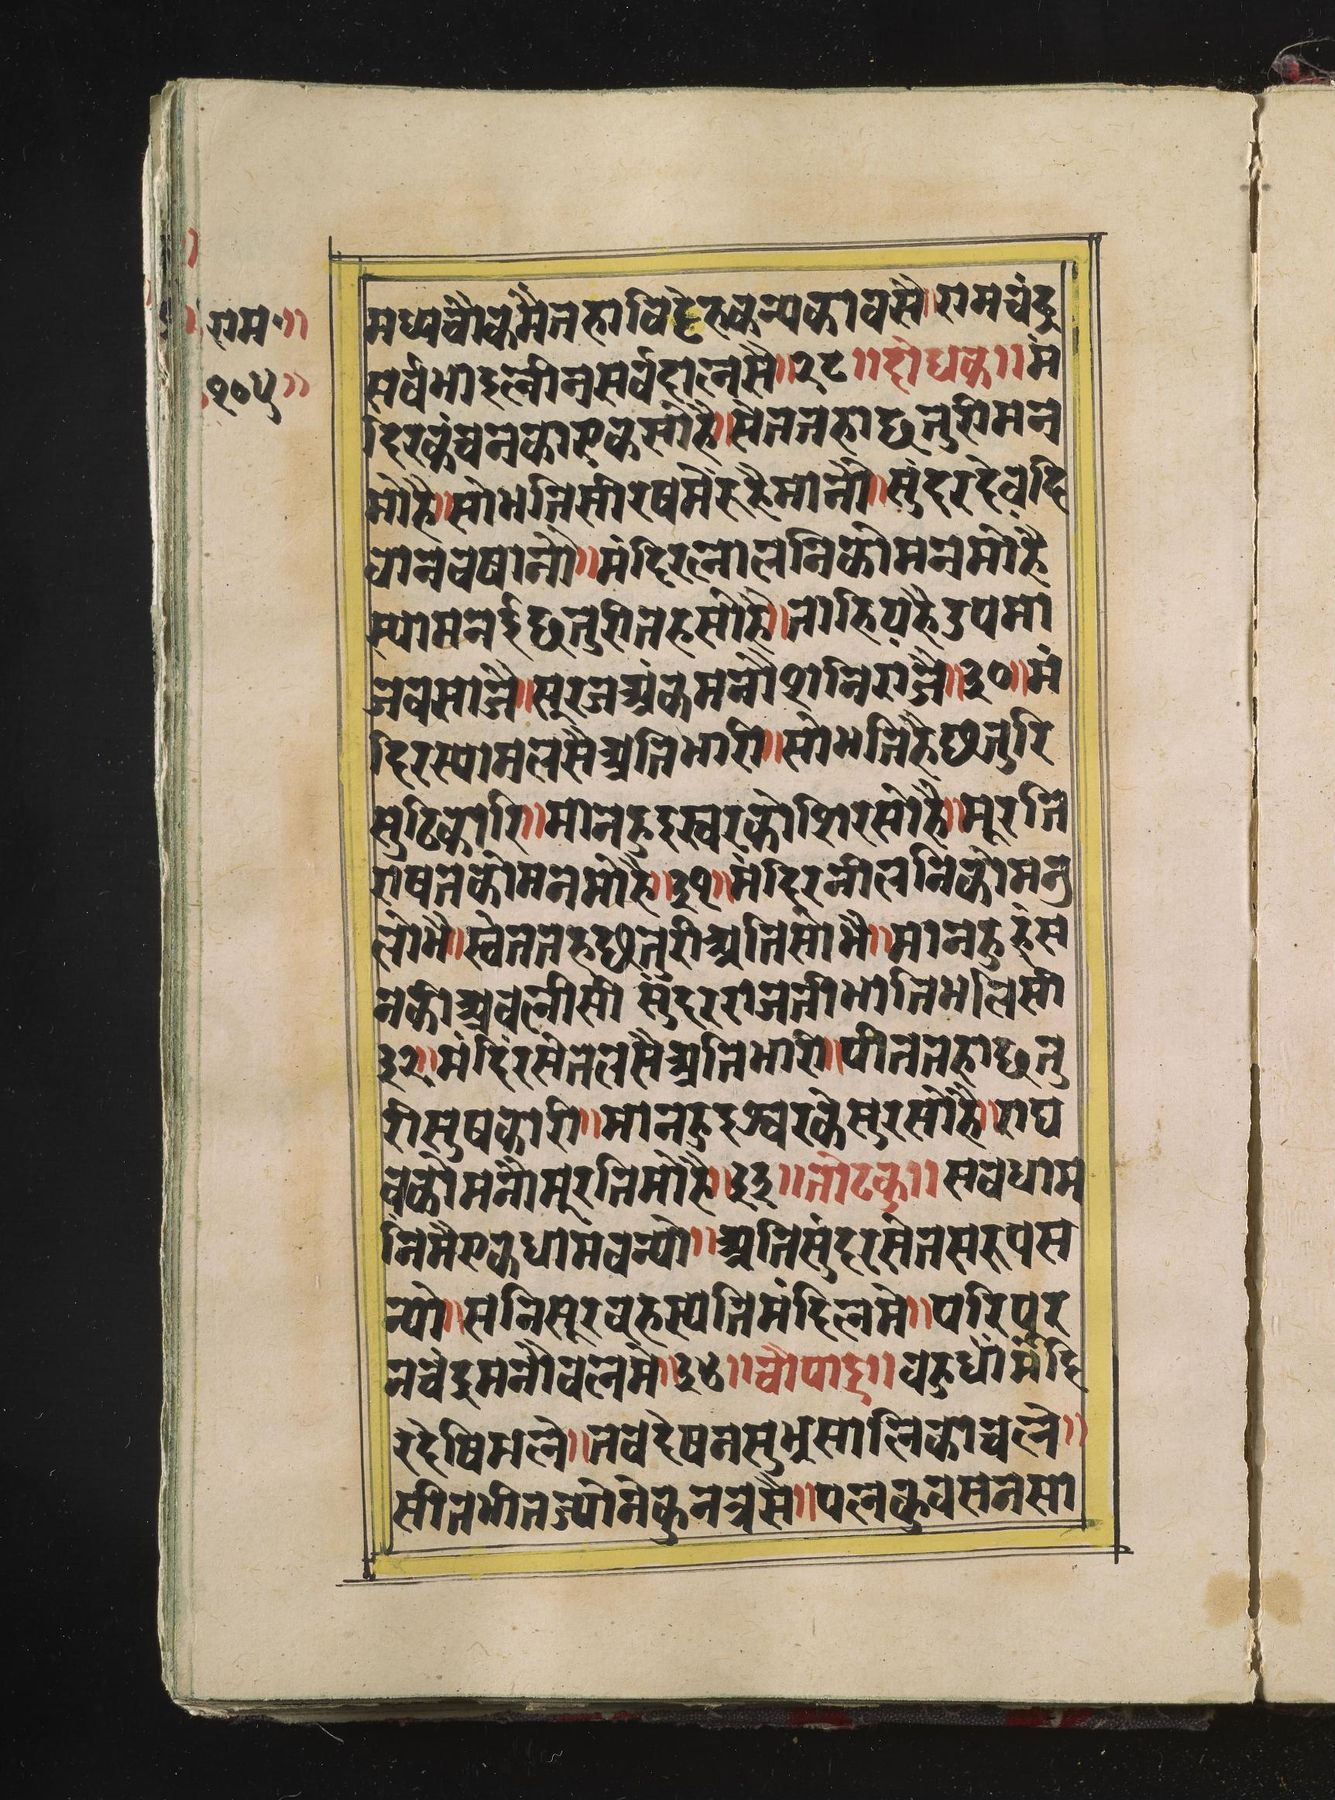 राम॥
१०५॥
मध्यचौकमैतहाविदेहकन्यकावसै॥रामचंदु
सर्वभाइलीनसर्वहालसै॥२८॥दोधक॥मं
दिरकंचनकोएकसोहै॥सेततहाछतुरीमन
मोहै॥सोभतिसीरषमेरुहैमानौ॥सुंदरदेवदि
वानवषानो॥मंदिरलालनिकोमनमोहै
स्यामनईछतुरीतहसोहै॥ताहियहैउपमा
जवसाजै॥सूरजअंकमनौशनिराजै॥३०॥मं
दिरस्यामलसैअतिभारी॥सोभतिहैछीतुरि
सुठिकारि॥मानहुइस्वरकोशिरसोहै॥मूरति
राषतकोमनमोहै॥३१॥मंदिरनीलनिकोमनु
लोभै॥स्वेततहछीतुरीअतिसोभै॥मानहुहंस
नकीअवलीसी सुंदरराजतीभातिभलिसी
३२॥मंदिरसेतलसैअतिभारी॥पीततहाछतु
रीसुषकारी॥मानहुइश्वरकेसुरसोहै॥राघ
वकोमनौमूरतिमोहै॥३३॥तोटक॥सवधाम
निमैएकधामवन्यो॥अतिसुंदरसेतसरुपस
न्यो॥सनिसूरवहस्पतिमंडिलमे॥परिपूर
नचंदुमनौवलमे॥३४॥चौपाइ॥वहुधांमंदि
रदेषिभले॥तवदेषनसुभ्रसालिकाचले॥
सीतभीतज्योनेकुनत्रसै॥पलकुवसनसा